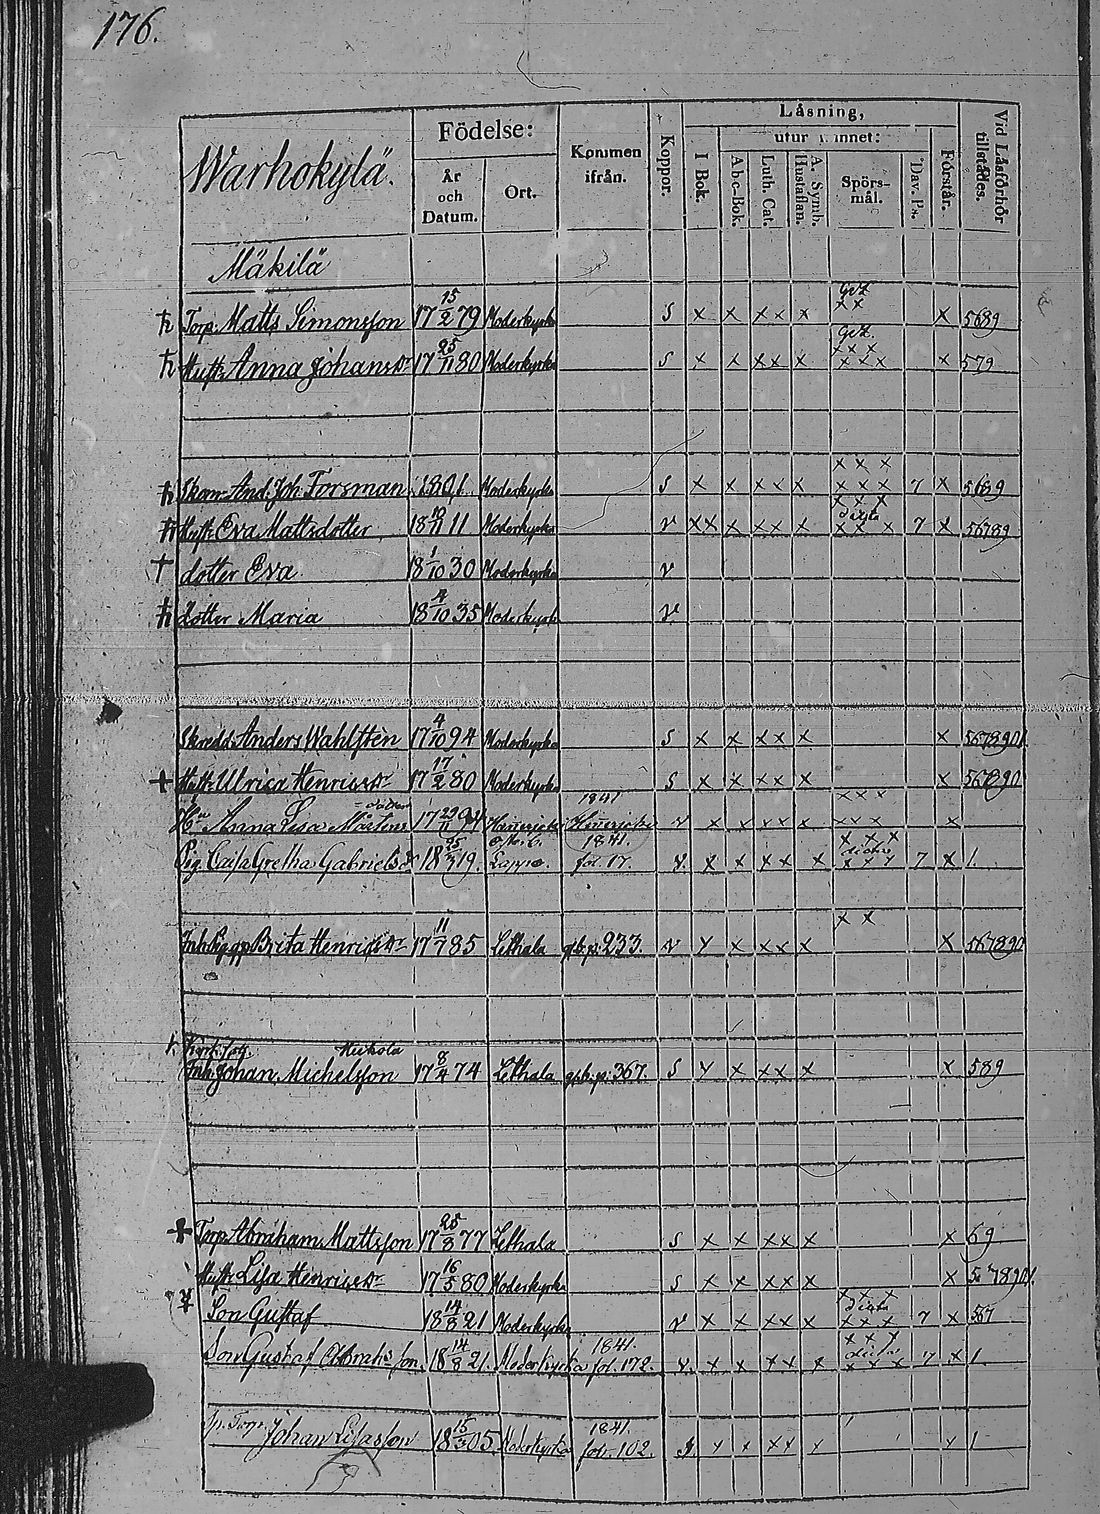 176.
Warhokylä.
Födelse:
År och Datum.
Ort.
Kommen ifrån.
Koppor.
Läsning,
I Bok.
utur minnet:
Abc-Bok.
Luth. Cat.
A. Symb. Hustaflan.
Spörs-mål.
Dav. Ps.
Förstår.
Vid Läsförhör tillstädes.
Mäkilä
Torp. Matts Simonsson 17 15/2 79 Moderkyrka S x x xx x x x x 5689
Hustr. Anna Johansdr 17 25/11 80 Moderkyrka S x x xx x xxx xxx x 579
Skom. And. Joh. Forsman 1801. Moderkyrka S x x xx x xxx xxx 7 x 5689
Hustr. Eva Mattsdotter 18 11 Moderkyrka v xx x xx x xxx xxx 7 x 56789
† dotter Eva 18 1/10 30 Moderkyrka v
dotter Maria 18 4/10 35 Moderkyrka v
Skredd. Anders Wahlsten 17 4/10 94 Moderkyrka S x x xx x x
Hustr. Ulrica Henricsdr 17 17/2 80 Moderkyrka S x x xx x x
Anna Lisa Mårtens dotter 17 29/11 94 1841 v x x xx x xxx xxx x
Pig. Caisa Gretha Gabrielsdr 18 25/3 19. Lappo. 1841. fol. 17. v x x xx x xxx xxx 7 x 1.
Brita Henricsdr 17 11/7 85 Lethala p. 233. v x x xx x x x x
Hukola
Inh. Johan Michelsson 17 8/4 74 Lethala p. 367. S x x xx x x 589
Torp. Abraham Mattsson 17 25/8 77 Lethala S x x xx x x 69
Hustr. Lisa Henricsdr 17 16/5 80 Moderkyrka S x x xx x x
Son Gustaf 18 14/3 21 Moderkyrka v x x xx x xxx xxx 7 x 567
Son Gustaf Abrahsson 18 14/3 21. Moderkyrka 1841. fol. 172. v. x x xx x xxx xxx 7 x 1
Torp. Johan Lisasson 18 15/3 05. Moderkyrka 1841. fol. 102. x x xx x x 1